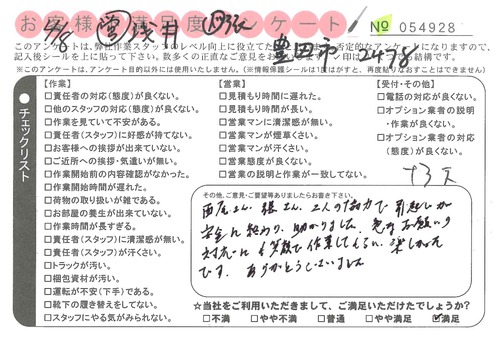 お客様満足度アンケート
№ 054928
豊田市
このアンケートは、弊社作業スタッフのレベル向上に役立てたい
記入後シールを上に貼って下さい。数多くの正直なご意見をお
※このアンケートは、アンケート目的以外には使用いたしません。(※情報保護シールは1度はがすと、再度貼りなおすことはできません)
チェックリスト
【作業】
□責任者の対応(態度)が良くない。
□他のスタッフの対応(態度)が良くない。
□作業を見ていて不安がある。
□責任者(スタッフ)に好感が持てない。
□お客様への挨拶が出来ていない。
□ご近所への挨拶・気遣いが無い。
□作業開始前の内容確認がなかった。
□作業開始時間が遅れた。
□荷物の取り扱いが雑である。
□お部屋の養生が出来ていない。
□作業時間が長すぎる。
□責任者(スタッフ)に清潔感が無い。
□責任者(スタッフ)が汗くさい。
□トラックが汚い。
□梱包資材が汚い。
□運転が不安(下手)である。
□靴下の履き替えをしてない。
□スタッフにやる気がみられない。
【営業】
□見積もり時間に遅れた。
□見積もり時間が長い。
□営業マンに清潔感が無い。
□営業マンが煙草くさい。
□営業マンが汗くさい。
□営業態度が良くない。
□営業の説明と作業が一致してない。
【受付・その他】
□電話の対応が良くない。
□オプション業者の説明
作業が良くない。
□オプション業者の対応
(態度)が良くない。
その他、ご意見・ご要望等ありましたらお書き下さい。
西尾さん、張さん、2人の協力で引越しが
安全に終わり、助かりました。急なお願いの
対応に
です。ありがとうございました
☆当社をご利用いただきまして、ご満足いただけたでしょうか?
□不満 □やや不満 □普通 □やや満足 ☑満足